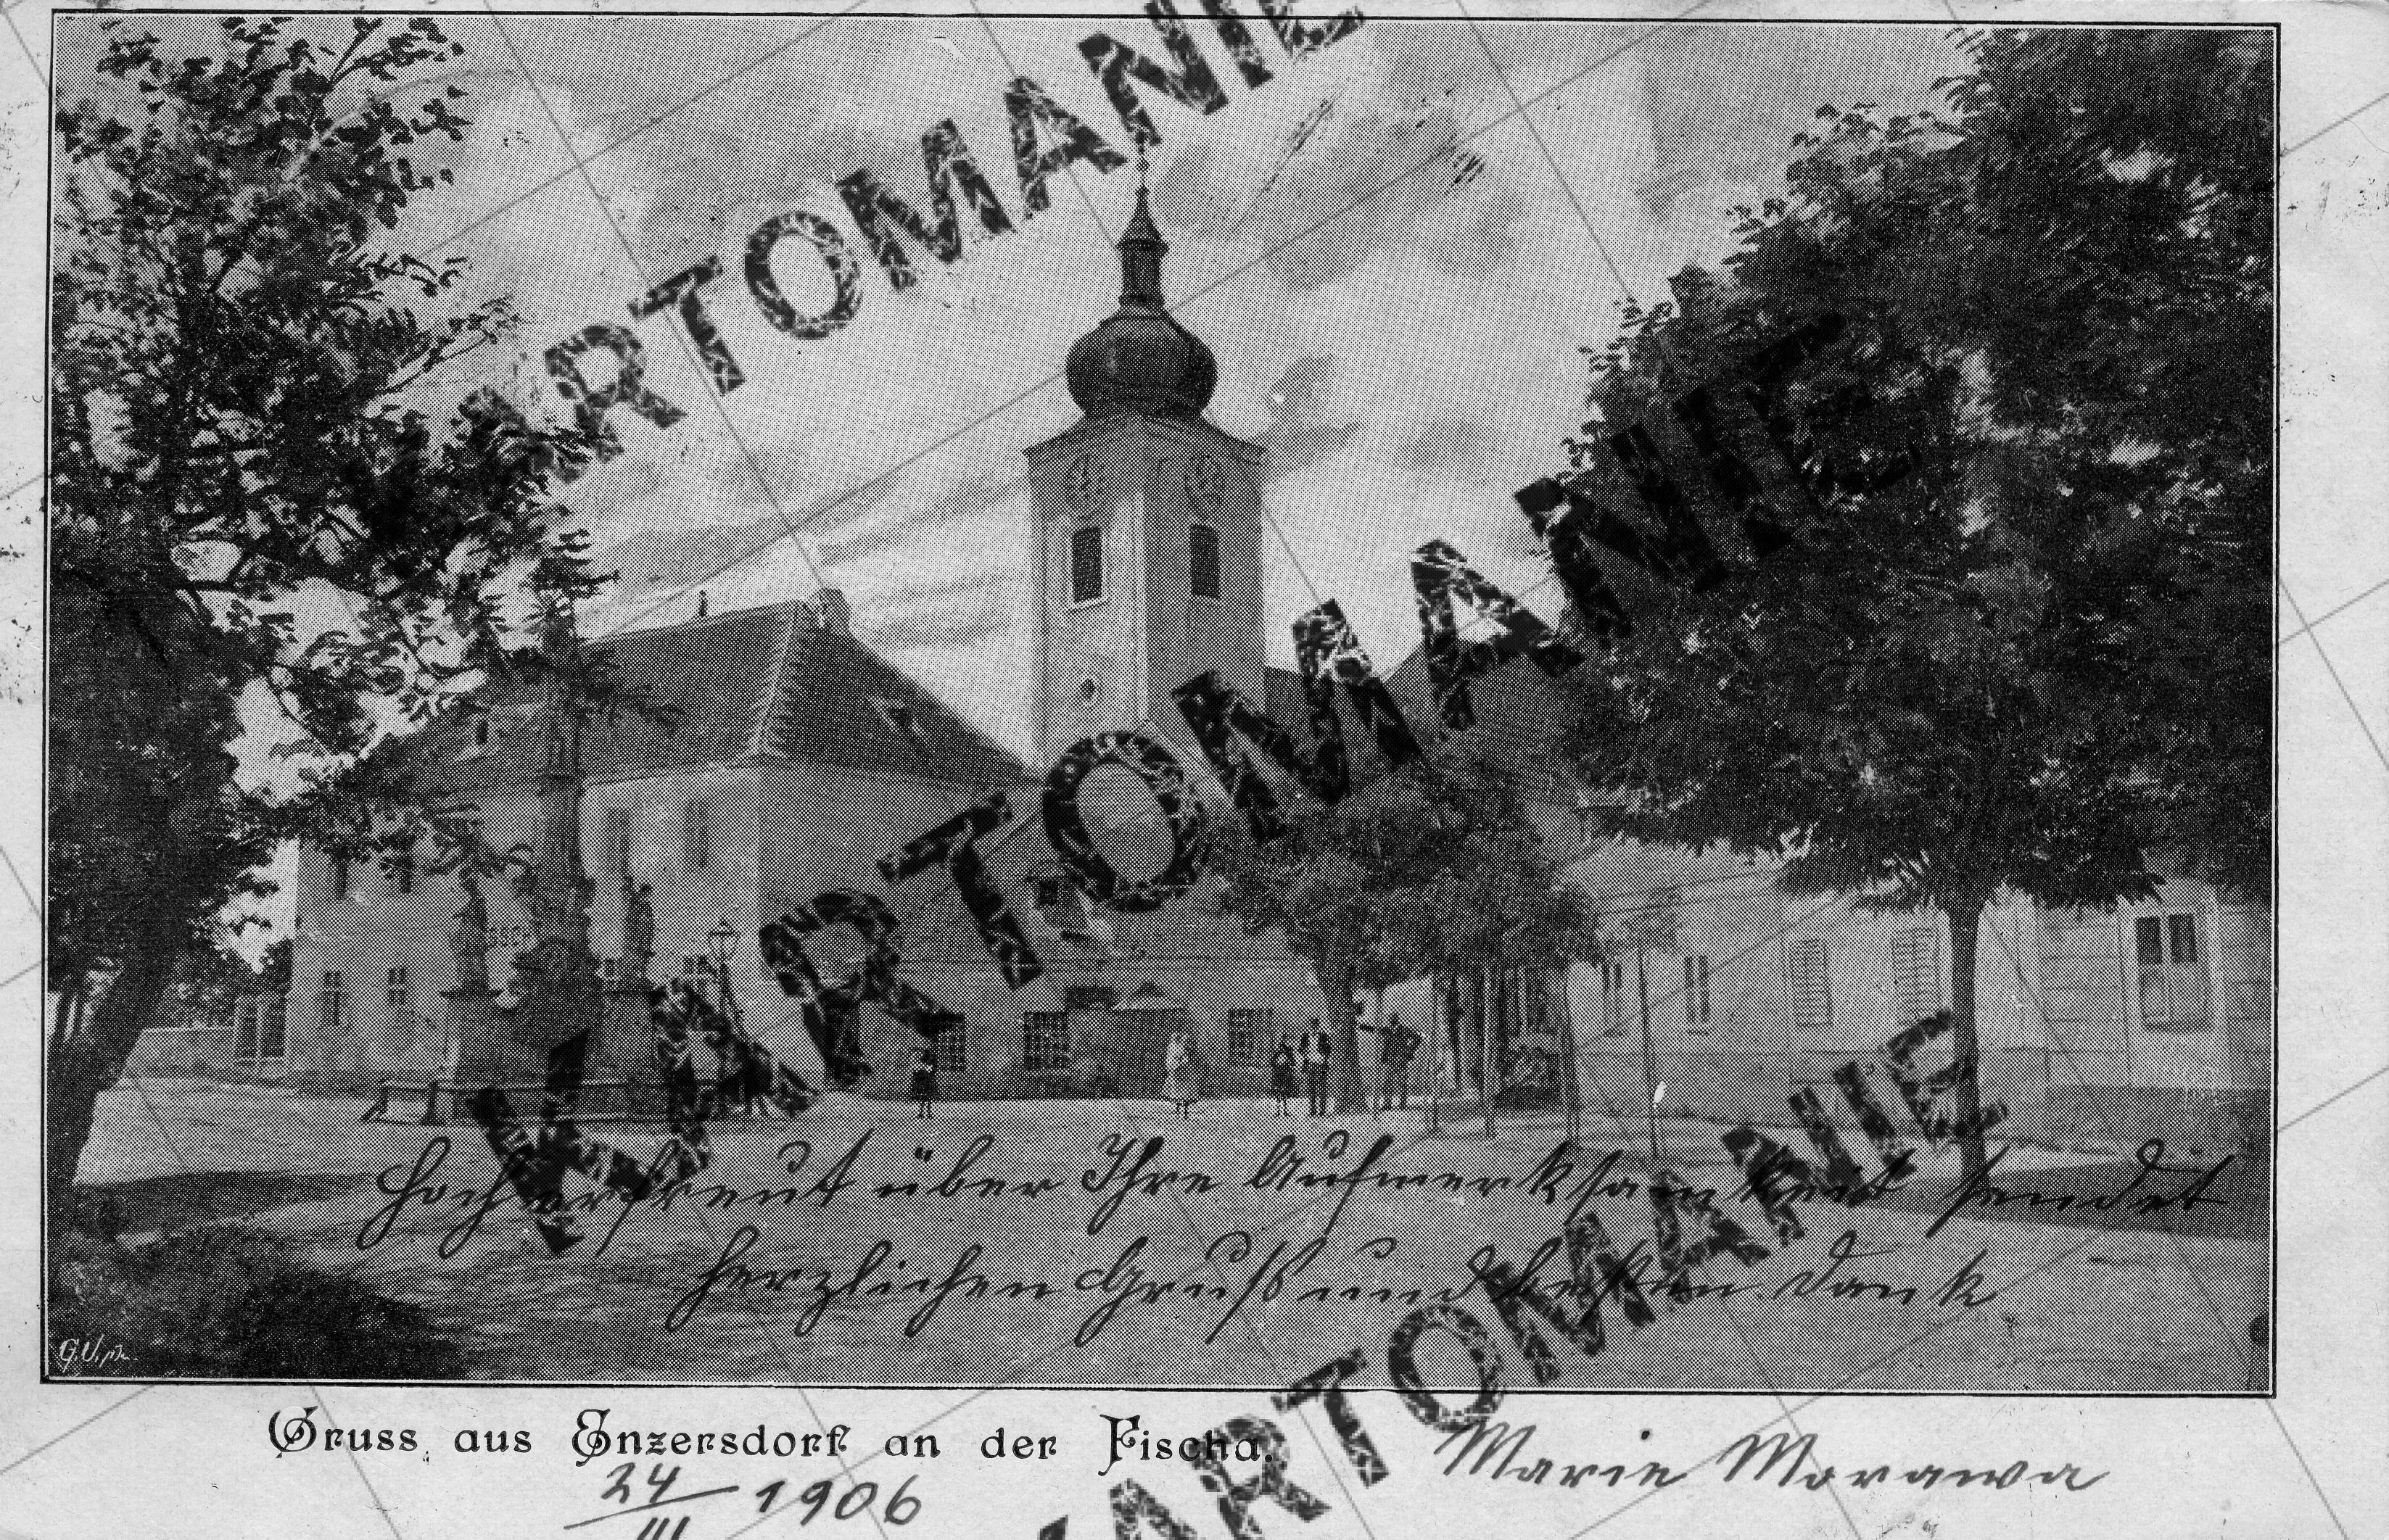 KARTOMANIE
KARTOMANIE
KARTOMANIE
Hocherfreut über Ihre Aufmerksamkeit sendet
herzlichen Gruß und besten Dank
Gruss aus Enzersdorf an der Fischa.
24/III 1906
Marie Morawa